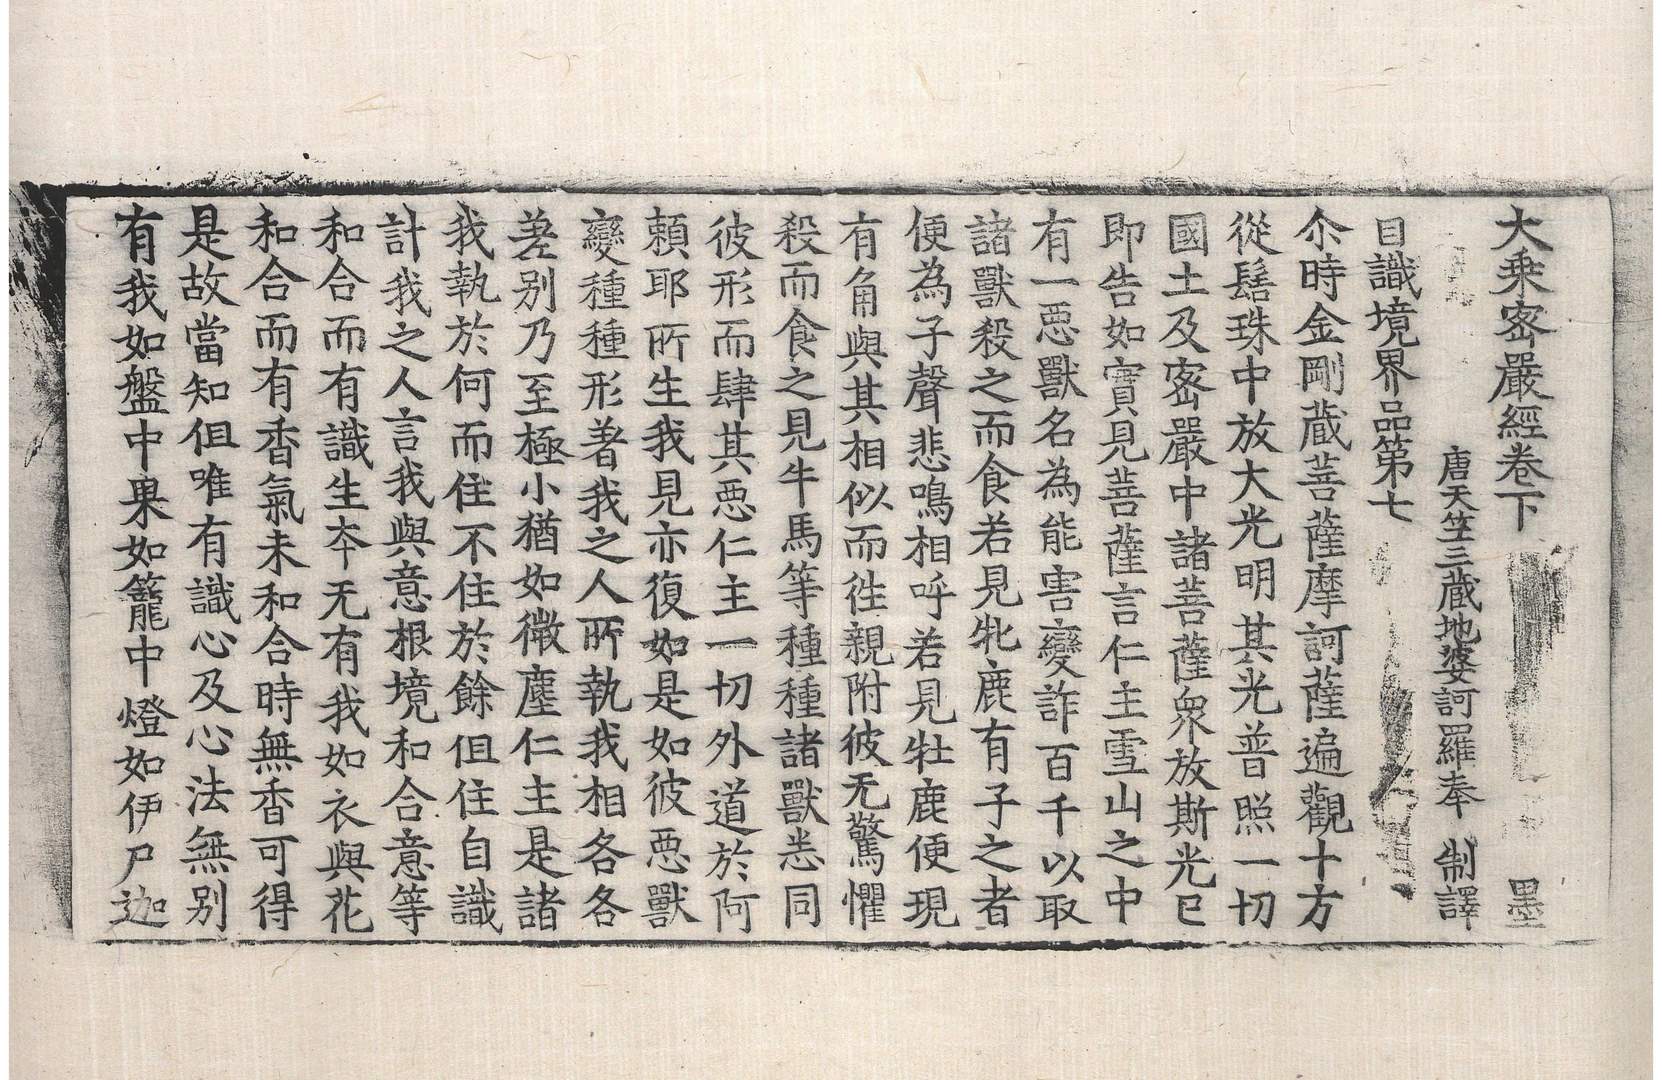 大乗宻嚴經卷下 墨
唐天竺三藏地婆訶羅奉 制譯
自識境界品第七
尒時金剛藏菩薩摩訶薩遍觀十方
從髻珠中放大光明其光普照一切
國土及宻嚴中諸菩薩衆放斯光已
即告如實見菩薩言仁主雪山之中
有一惡獸名為能害變詐百千以取
諸獸殺之而食若見牝鹿有子之者
便為子聲悲鳴相呼若見牡鹿便現
有角與其相似而徃親附彼无驚懼
殺而食之見牛馬等種種諸獸悉同
彼形而肆其惡仁主一切外道於阿
頼耶所生我見亦復如是如彼惡獸
變種種形著我之人所執我相各各
差别乃至極小猶如微塵仁主是諸
我執於何而住不住於餘但住自識
計我之人言我與意根境和合意等
和合而有識生夲无有我如衣與花
和合而有香氣未和合時無香可得
是故當知但唯有識心及心法無别
有我如盤中果如籠中燈如伊尸迦